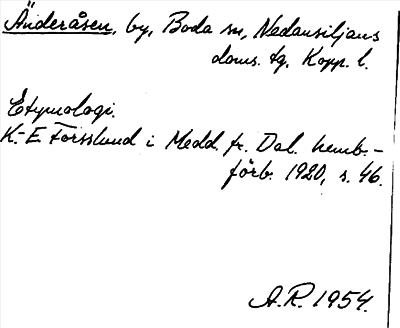 Änderåsen, by, Boda sn, Nedansiljans
doms. tg, Kopp. l.
Etymologi.
K.-E Forsslund i Medd. fr. Dal. hemb.-
förb. 1920, s. 46.
A.R. 1954.